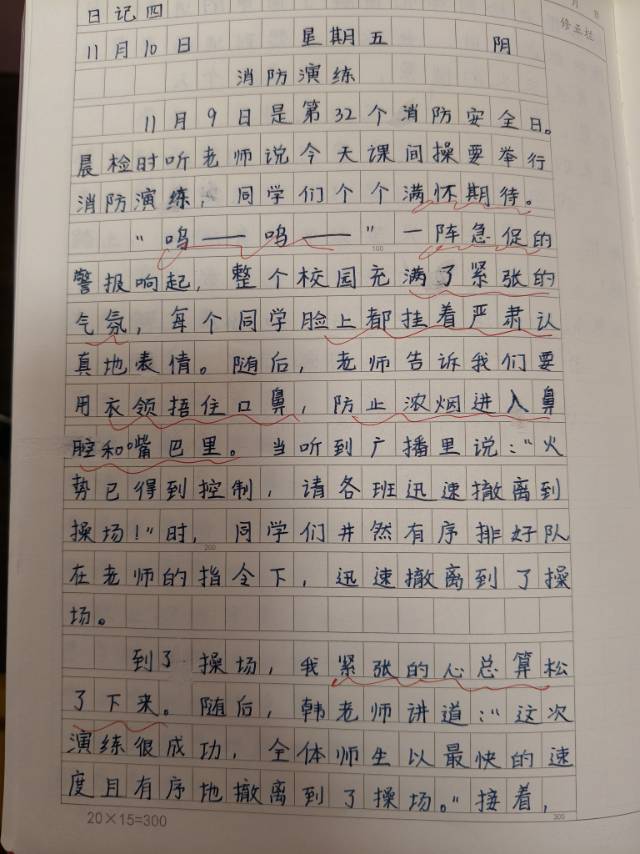 月 日
修正栏
日记四
11月10日 星期五 阴
消防演练
11月9日是第32个消防安全日。
晨检时听老师说今天课间操要举行
消防演练，同学们个个满怀期待。
“呜——呜——”一阵急促的
警报响起，整个校园充满了紧张的
气氛，每个同学脸上都挂着严肃认
真地表情。随后，老师告诉我们要
用衣领捂住口鼻，防止浓烟进入鼻
腔和嘴巴里。当听到广播里说：“火
势已得到控制，请各班迅速撤离到
操场！”时，同学们井然有序排好队
在老师的指令下，迅速撤离到了操
场。
到了操场，我紧张的心总算松
了下来。随后，韩老师讲道：“这次
演练很成功，全体师生以最快的速
度且有序地撤离到了操场。”接着，
100
200
300
20×15=300